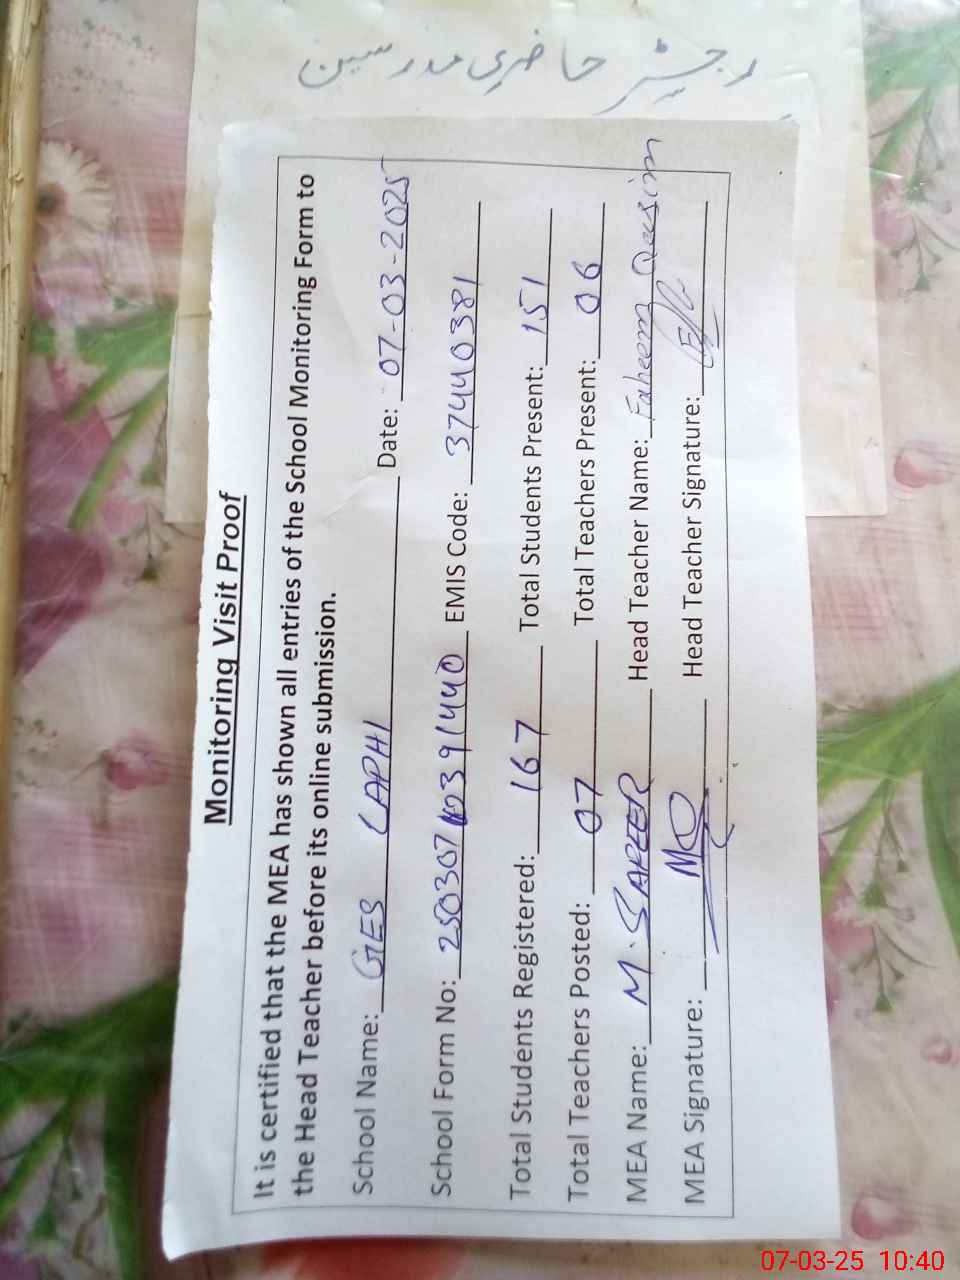 رجسٹر حاضری مدرسین
Monitoring Visit Proof
It is certified that the MEA has shown all entries of the School Monitoring Form to
the Head Teacher before its online submission.
School Name: GES LAPHI Date: 07-03-2025
School Form No: 250307 1440 EMIS Code: 37440381
Total Students Registered: 167 Total Students Present: 151
Total Teachers Posted: 07 Total Teachers Present: 06
MEA Name: M. SAFEER Head Teacher Name: Faheem
MEA Signature: Head Teacher Signature:
07-03-25 10:40